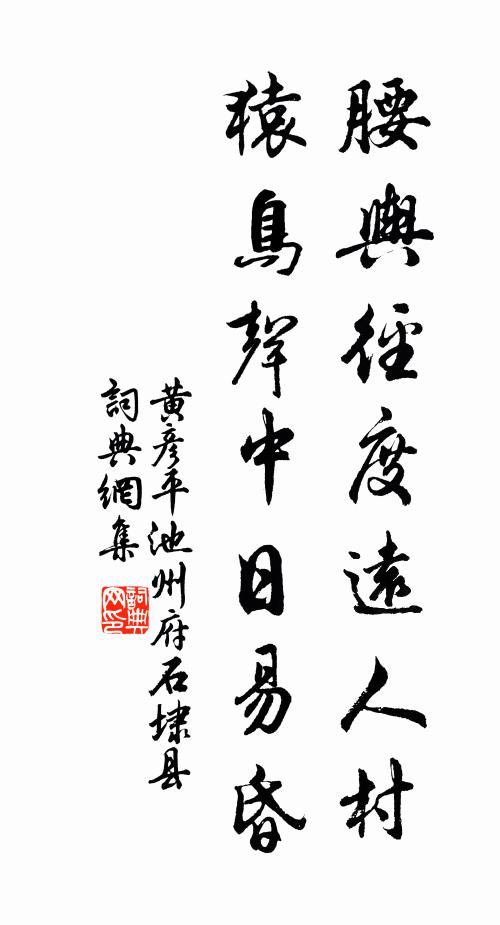 腰輿徑度遠人村
猿鳥聲中日易昏
黃彥平池州府石埭县
詞典網集
詞典网印